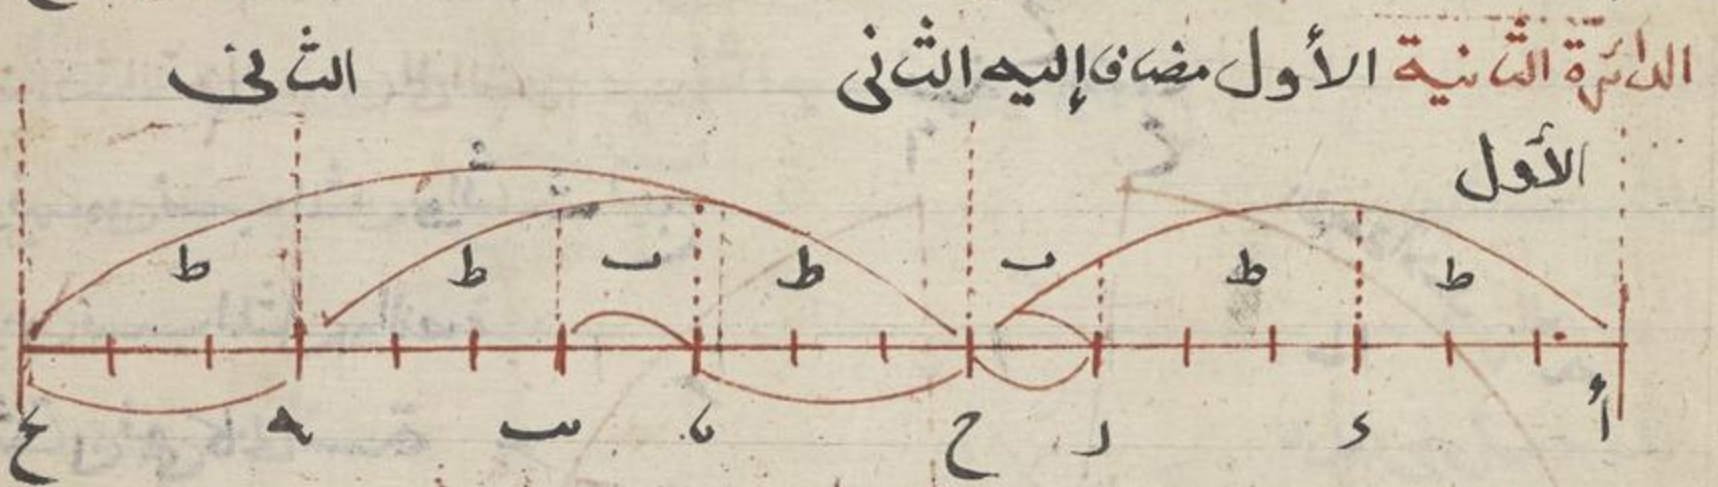 الدائرة الثانية الأول مضاف إليه الثاني الثاني
الأول
ط ط ب ط ب ط ط
أ د ح ه